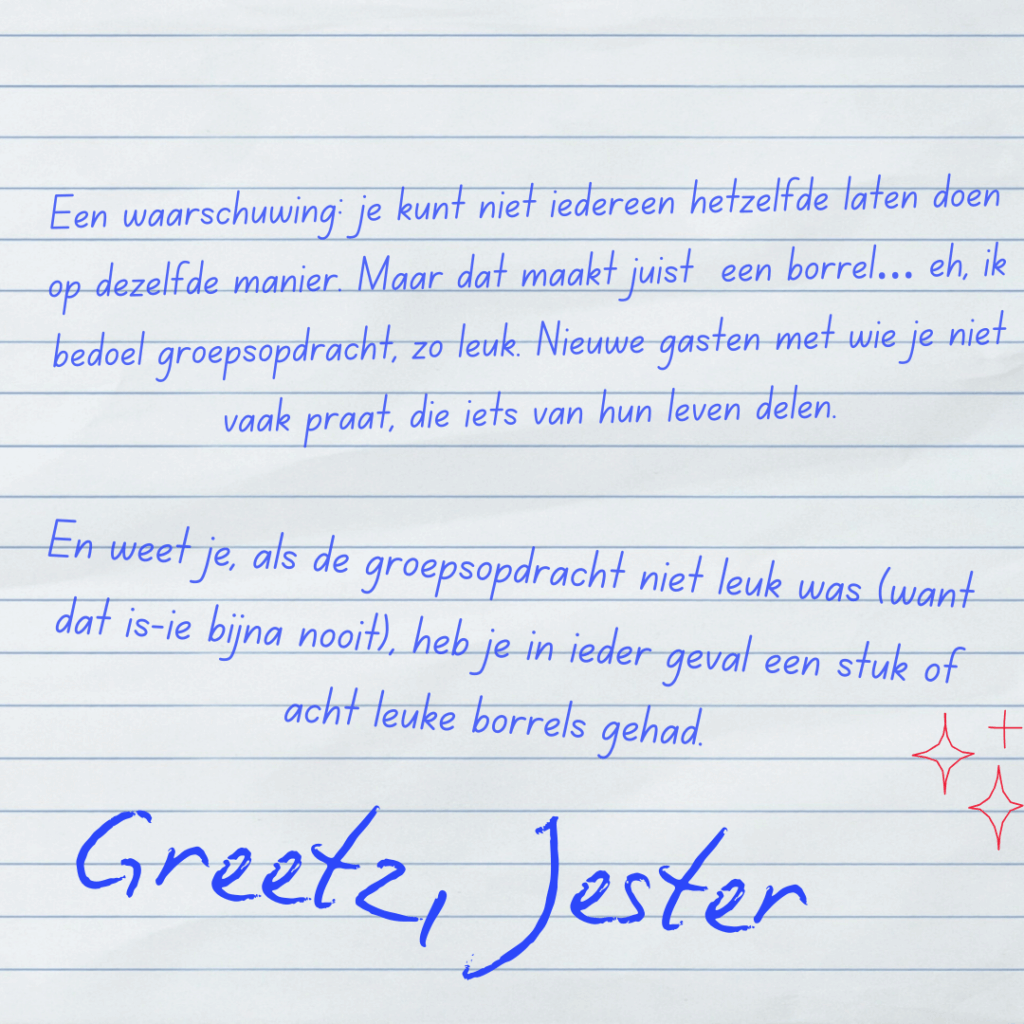 Een waarschuwing: je kunt niet iedereen hetzelfde laten doen
op dezelfde manier. Maar dat maakt juist een borrel... eh, ik
bedoel groepsopdracht, zo leuk. Nieuwe gasten met wie je niet
vaak praat, die iets van hun leven delen.
En weet je, als de groepsopdracht niet leuk was (want
dat is-ie bijna nooit), heb je in ieder geval een stuk of
acht leuke borrels gehad.
Greetz, Jester